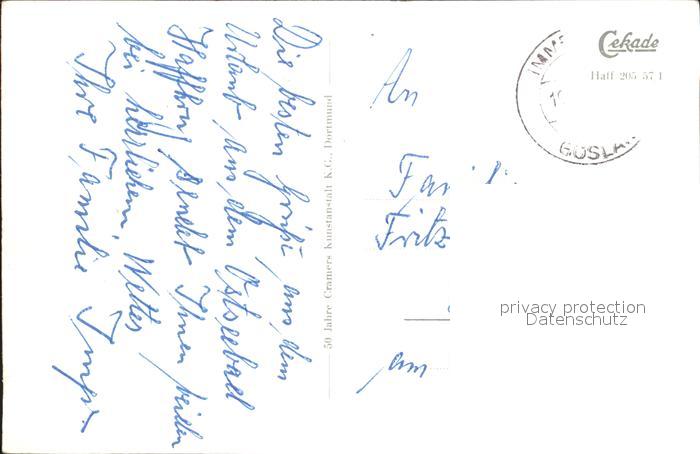 Die besten Grüße aus dem
Urlaub aus dem Ostseebad
Haffkrug sendet Ihnen beiden
bei herrlichem Wetter
Ihre Familie
50 Jahre Cramers Kunstanstalt K.G., Dortmund
An
Fritz
am
Cekade
Haff 205 57 1
IMME
GOSLA
privacy protection
Datenschutz